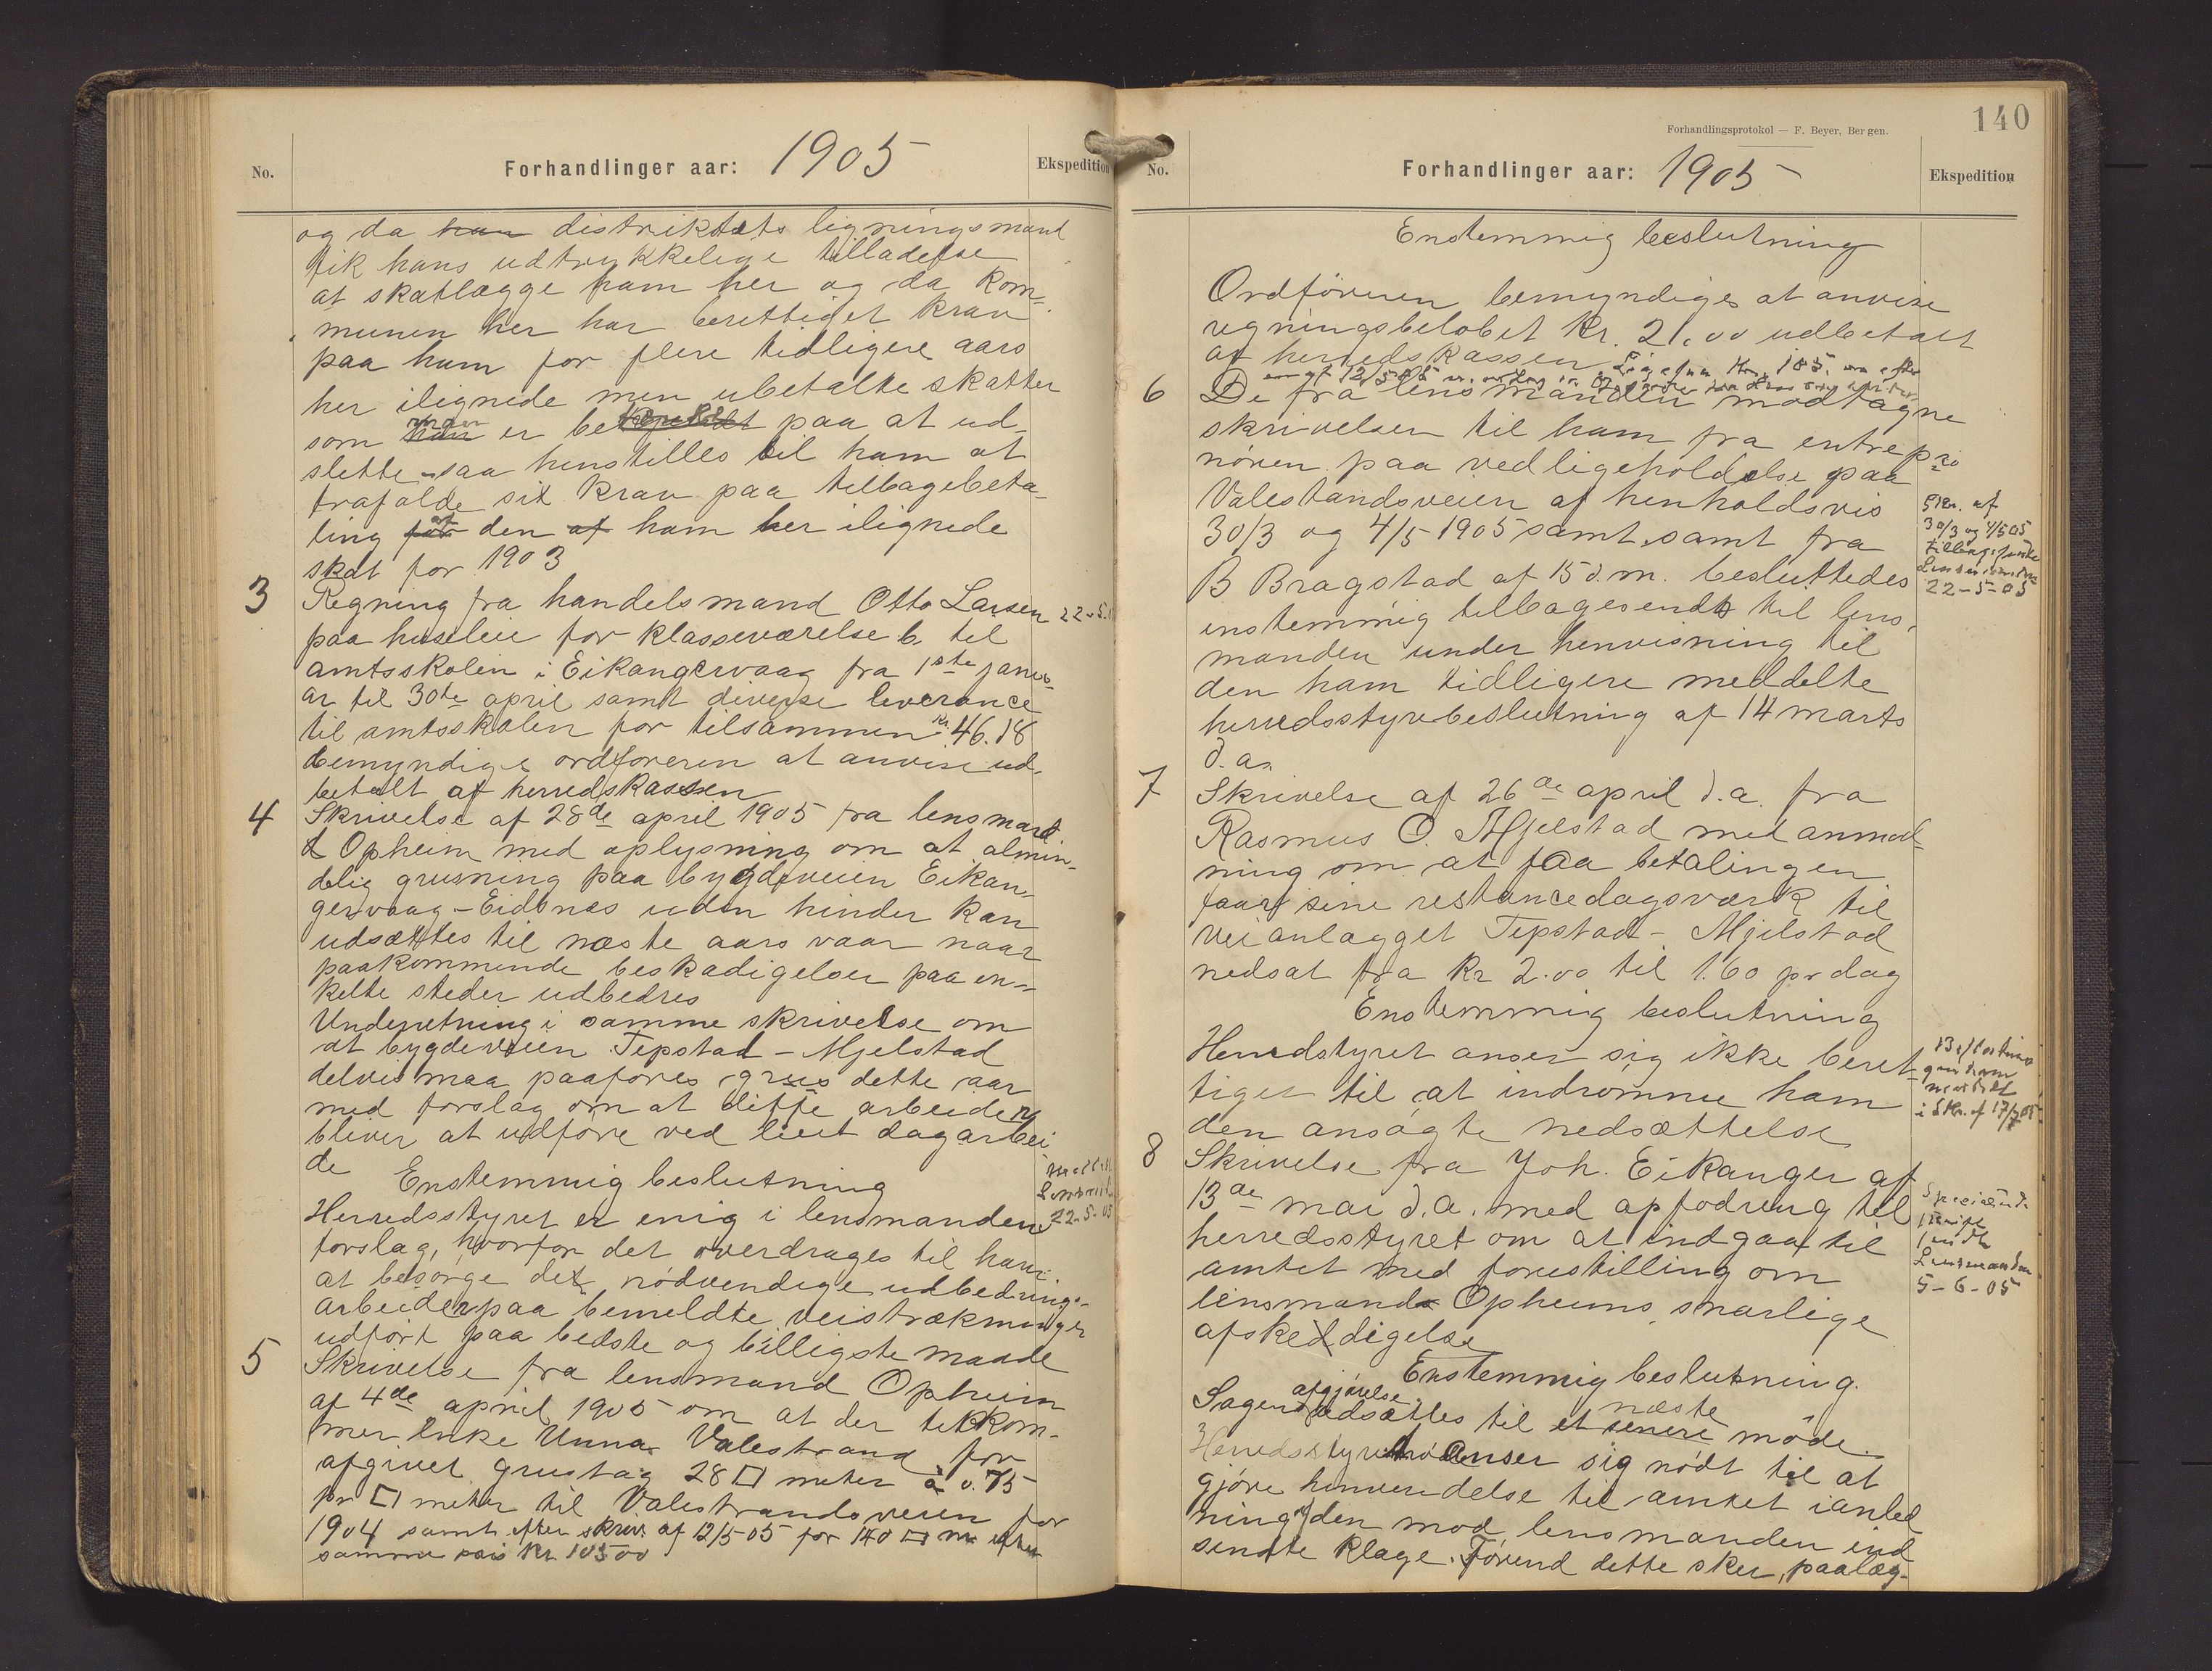 No.
Forhandlinger aar: 1905
Ekspedition
og da han distriktets ligningsmand
fik hans udtrykkelige tilladelse
at skatlægge ham her og da kom-
munen her har berettiget krav
paa ham for flere tidligere aars
her ilignede men ubetalte skatter
som er paa at ud-
slette saa henstilles til ham at
frafalde sit krav paa tilbagebeta-
ling for af den af ham her ilignede
skat for 1903
3 Regning fra handelsmand Otto Larsen
22-5.
paa husleie for klasseværelse b. til
amtsskolen i Eikangervaag fra 1ste janu-
ar til 30te april samt diverse leverance
til amtsskolen for tilsammen kr. 46.18
bemyndiges ordføreren at anvise ud-
betalt af herredskassen
4 Skrivelse af 28de april 1905 fra lensmand
Opheim med oplysning om at almin-
delig grusning paa bygdeveien Eikan-
gervaag - Eidsnes uden hinder kan
udsættes til næste aars vaar naar
paakommende beskadigelser paa en-
kelte steder udbedres
Underretning i samme skrivelse om
at bygdeveien Tepstad - Mjelstad
delvis maa paaføres grus dette aar
med forslag om at disse arbeider
bliver at udføre ved leiet dagarbei
de
Enstemmig beslutning
Herredsstyret er enig i lensmandens
forslag, hvorfor det overdrages til ham
at besørge det nødvendige udbedrings-
arbeider paa bemeldte veistrækninger
udført paa bedste og billigste maade
22-5-05
5 Skrivelse fra lensmand Opheim
af 4de april 1905 om at der tilkom-
mer Enke Unna Valestrand for
afgivet grustag 28 □ meter à 0.75
pr □ meter til Valestrandsveien for
1904 samt efter skriv. af 12/5-05 for 140 □ m efter
samme pris kr 105.00
140
Forhandlingsprotokol — F. Beyer, Bergen.
No.
Forhandlinger aar: 1905
Ekspedition
Enstemmig beslutning
Ordføreren bemyndiges at anvise
regningsbeløbet kr. 21.00 udbetalt
af herredskassen
6 De fra lensmanden modtagne
skrivelser til ham fra entrepre
nøren paa vedligeholdelse paa
Valestandsveien af henholdsvis
30/3 og 4/5 1905 samt samt fra
B Bragstad af 15 d.m. besluttedes
enstemmig tilbagesendt til lens-
manden under henvisning til
den ham tidligere meddelte
herredsstyrebeslutning af 14 marts
d.a.
Skr. af
30/3 og 4/5 05
tilbagesendt
Lensmanden
22-5-05
7 Skrivelse af 26de april d.a. fra
Rasmus O. Mjelstad med anmod-
ning om at faa betalingen
for sine restancedagsværk til
veianlægget Tepstad - Mjelstad
nedsat fra kr 2.00 til 1.60 pr dag
Enstemmig beslutning
Herredstyret anser sig ikke beret-
tiget til at indrømme ham
den ansøgte nedsættelse
Beslutnin
gen ham
meddelt
i Skr. af 17/7 05
8 Skrivelse fra Joh. Eikanger af
13de mai d.a. med opfodring til
herredsstyret om at indgaa til
amtet med forestilling om
lensmand Opheims snarlige
afskeddigelse
sendt
Lensmanden
5-6-05
Enstemmig beslutning.
Sagens afgjørelse udsættes til et senere næste møde.
Herredsstyret anser sig nødt til at
gjøre henvendelse til amtet i anled
ning af den mod lensmanden ind
sendte klage. Førend dette sker, paalæg-